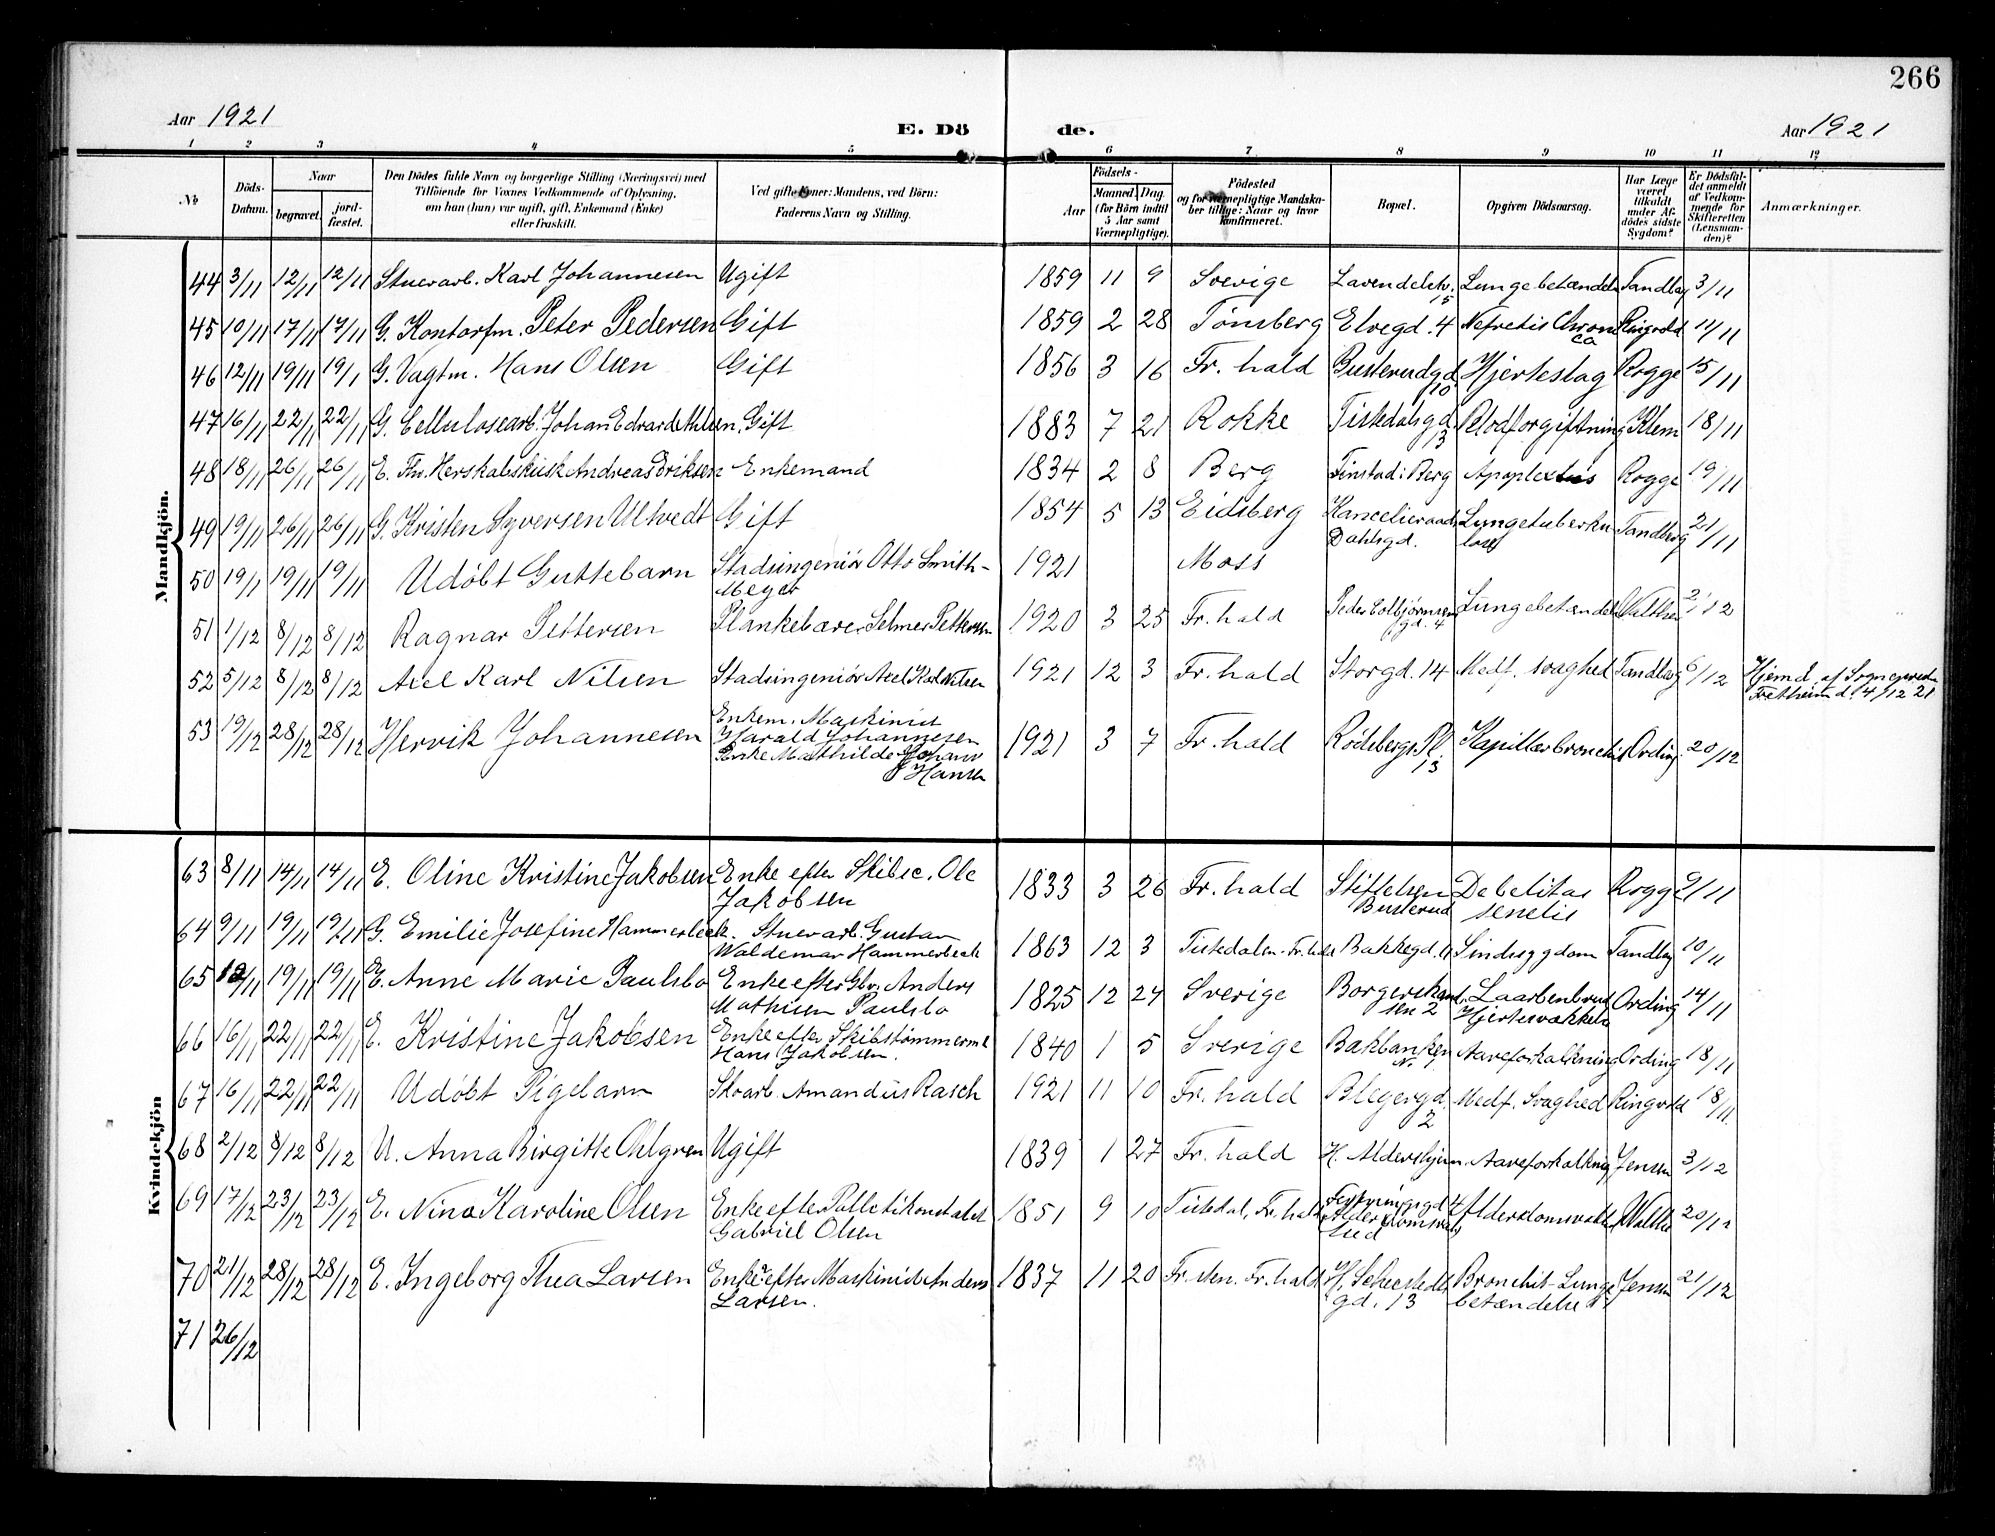 266
Aar 1921
E. Dö de.
Aar 1921
1 2 3 4 5 6 7 8 9 10 11 12
No
Döds-Datum.
Naar
begravet.
jord-fæstet.
Den Dödes fulde Navn og borgerlige Stilling (Næringsvei) med
Tilföiende for Voxnes Vedkommende af Oplysning,
om han (hun) var ugift, gift, Enkemand (Enke)
eller fraskilt.
Ved gifte Koner: Mandens, ved Börn:
Faderens Navn og Stilling.
Födsels-
Aar
Maaned. Dag.
(for Börn indtil
5 Aar samt
Værnepligtige).
Födested
og for værnepligtige Mandska-
ber tillige: Naar og hvor
konfirmeret.
Bopæl.
Opgiven Dödsaarsag.
Har Læge
været
tilkaldt
under Af-
dödes sidste
Sygdom?
Er Dödsfal-
det anmeldt
af Vedkom-
mende for
Skifteretten
(Lensman-
den)?
Anmærkninger.
Mandkjön.
44 3/11 12/11 12/11 Stuerarb. Karl Johannesen Ugift 1859 11 9 Sverige Lavendelstr. 15 Lungebetændels Tandbg 3/11
45 10/11 17/11 17/11 G. Kontorfm. Peter Pedersen Gift 1859 2 28 Tønsberg Elvegd. 4 Nefretis Chronica Ringvold 11/11
46 12/11 19/11 19/1 G. Vagtm. Hans Olsen Gift 1856 3 16 Fr.hald Busterudgd 10 Hjerteslag Rogge 15/11
47 16/11 22/11 22/11 G. Cellulosearb. Johan Edvard Athlsen. Gift 1883 7 21 Rokke Tistedalsgd 3 Blodforgiftning Klem 18/11
48 18/11 26/11 26/11 E. Fhv. Herskabskusk Andreas Eriksen Enkemand 1834 2 8 Berg Finstad i Berg Apoplexius Rogge 19/11
49 19/11 26/11 26/11 G. Kristen Syversen Ultvedt Gift 1854 5 13 Eidsberg Kancelieraad Dahlsgd. Lungetuberkulose Tandberg 21/11
50 19/1 19/11 19/11 Udøbt Guttebarn Stadsingeniør Otto Smith-
Meyer 1921 Moss
51 1/12 8/12 8/12 Ragnar Pettersen Plankebærer Selmer Pettersen 1920 3 25 Fr.hald Peder Colbjørnsens gd. 4 Lungebetændels Walther 2/12
52 5/12 8/12 8/12 Axel Karl Nilsen Stadsingeniør Axel Karl Nilsen 1921 12 3 Fr.hald Storgd. 14 Medf. svaghed Tandberg 6/12 Hjemd. af Sogneprest
Fretheim d. 4/12 21
53 19/12 28/12 28/12 Hervik Johannesen Enkem. Maskinist
Harald Johannesen
Enke Mathilde Johans
Hansen 1921 3 7 Fr.hald Rødsbergs Pl. 13 Kapillærbronchit Ording 20/12
Kvindekjön
63 8/11 14/11 14/11 E. Oline Kristine Jakobsen Enke efter Skibsc. Ole
Jakobsen 1833 3 26 Fr.hald Stiftelsen Busterud Debelitas senelis Rogge 9/11
64 9/11 19/11 19/11 G. Emilie Josefine Hammerbeck. Stuerarb. Gustav
Waldemar Hammerbeck 1863 12 3 Tistedalen. Fr.hald Bakkegd. 11 Sindssygdom Tandbg 10/11
65 12/11 19/11 19/11 E. Anne Marie Paulsbo Enke efter Gbr. Anders
Mathisen Paulsbo 1825 12 24 Sverige Borgerskand. sen 2 Laarbenbrud Hjertesvækkels Ording 14/11
66 16/11 22/11 22/11 E. Kristine Jakobsen Enke efter Skibstømmerm.
Hans Jakobsen. 1840 1 5 Sverige Bakbanken N. 1 Aareforkalkning Ording 18/11
67 16/11 22/11 22/11 Udøbt Pigebarn Skoarb. Amandus Rasch 1921 11 10 Fr.hald Blegergd. 2 Medf. Svaghed Ringvold 18/11
68 2/12 8/12 8/12 U. Anna Birgitte Ohlgren Ugift 1839 1 27 Fr.hald H. Aldershjem. Aareforkalkning Jensen 3/12
69 17/12 23/12 23/12 E. Nina Karoline Olsen Enke efter Pollitikonstabel
Gabriel Olsen 1851 9 10 Tistedal, Fr.hald Alderdomssvak Walther 20/12
70 21/12 28/12 28/12 E. Ingeborg Thea Larsen Enke efter Maskinist Anders
Larsen. 1837 11 20 Fr.sten. Fr.hald H. Sehestedts
gd. 13 Bronchit-Lunge
betændelse Jensen 21/12
71 26/12